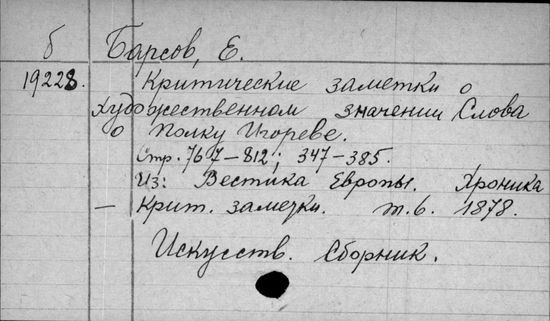 б Барсов, Е.
19228. Критические заметки о
художественном значении Слова
о Полку Игореве.
Стр. 767–812; 347–385.
Из: Вестника Европы. Хроника
– Крит. заметки. т. 6. 1878.
Искусств. Сборник.